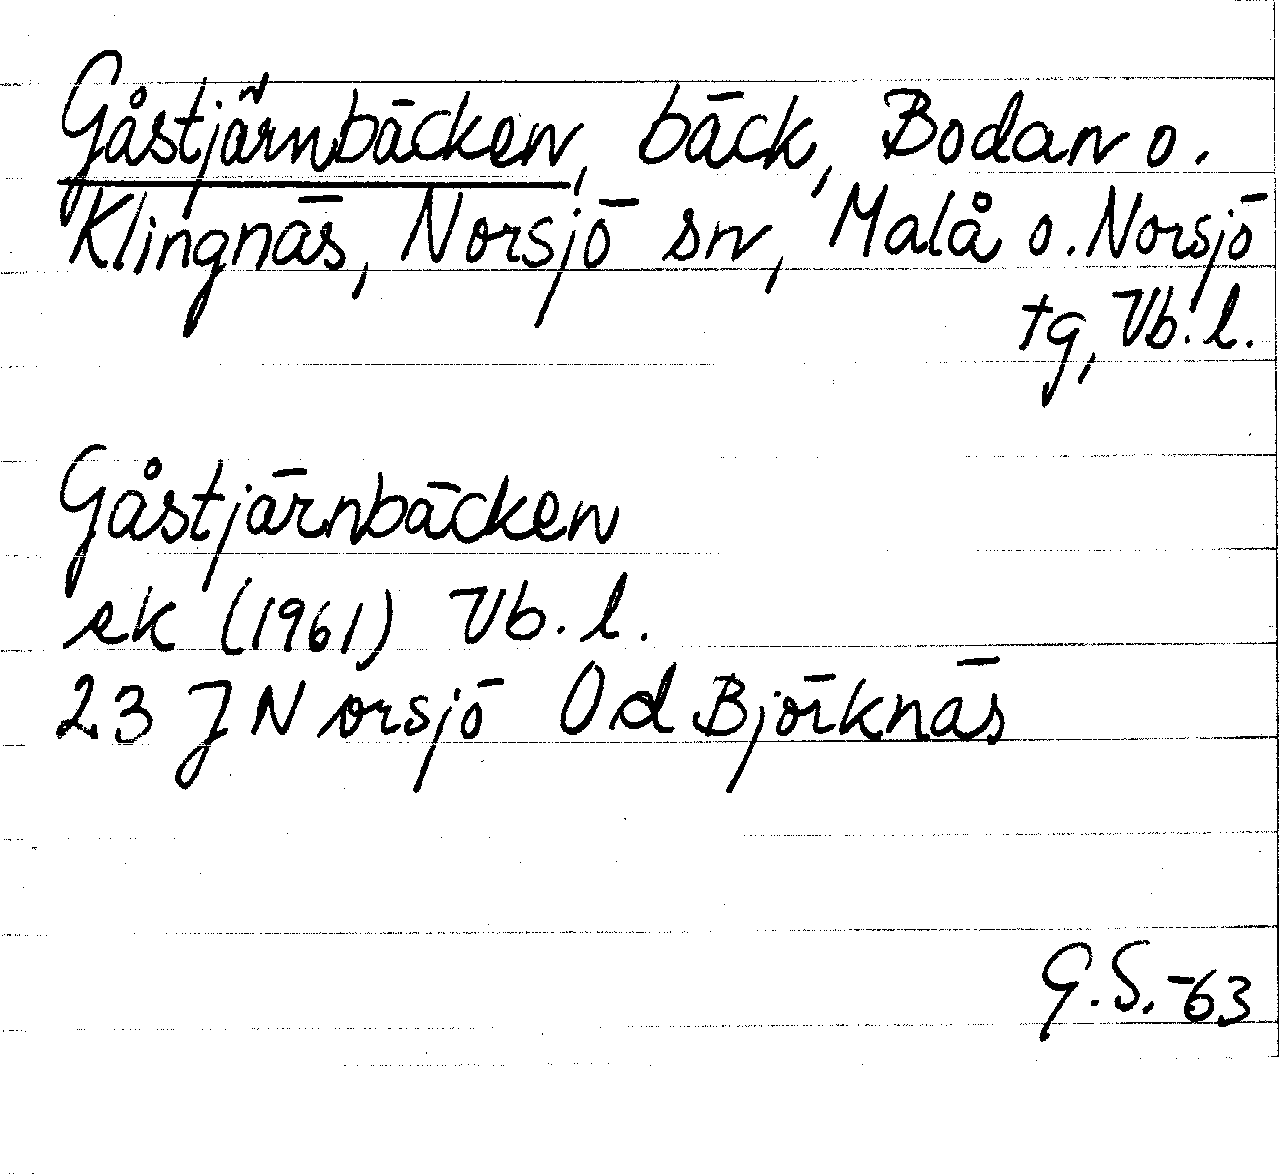 Gåstjärnbäcken, bäck, Bodan o.
Klingnäs, Norsjö sn, Malå o. Norsjö
tg, Vb. l.
Gåstjärnbäcken
ek (1961) Vb. l.
23 J Norsjö 0d Björknäs
G.S.-63